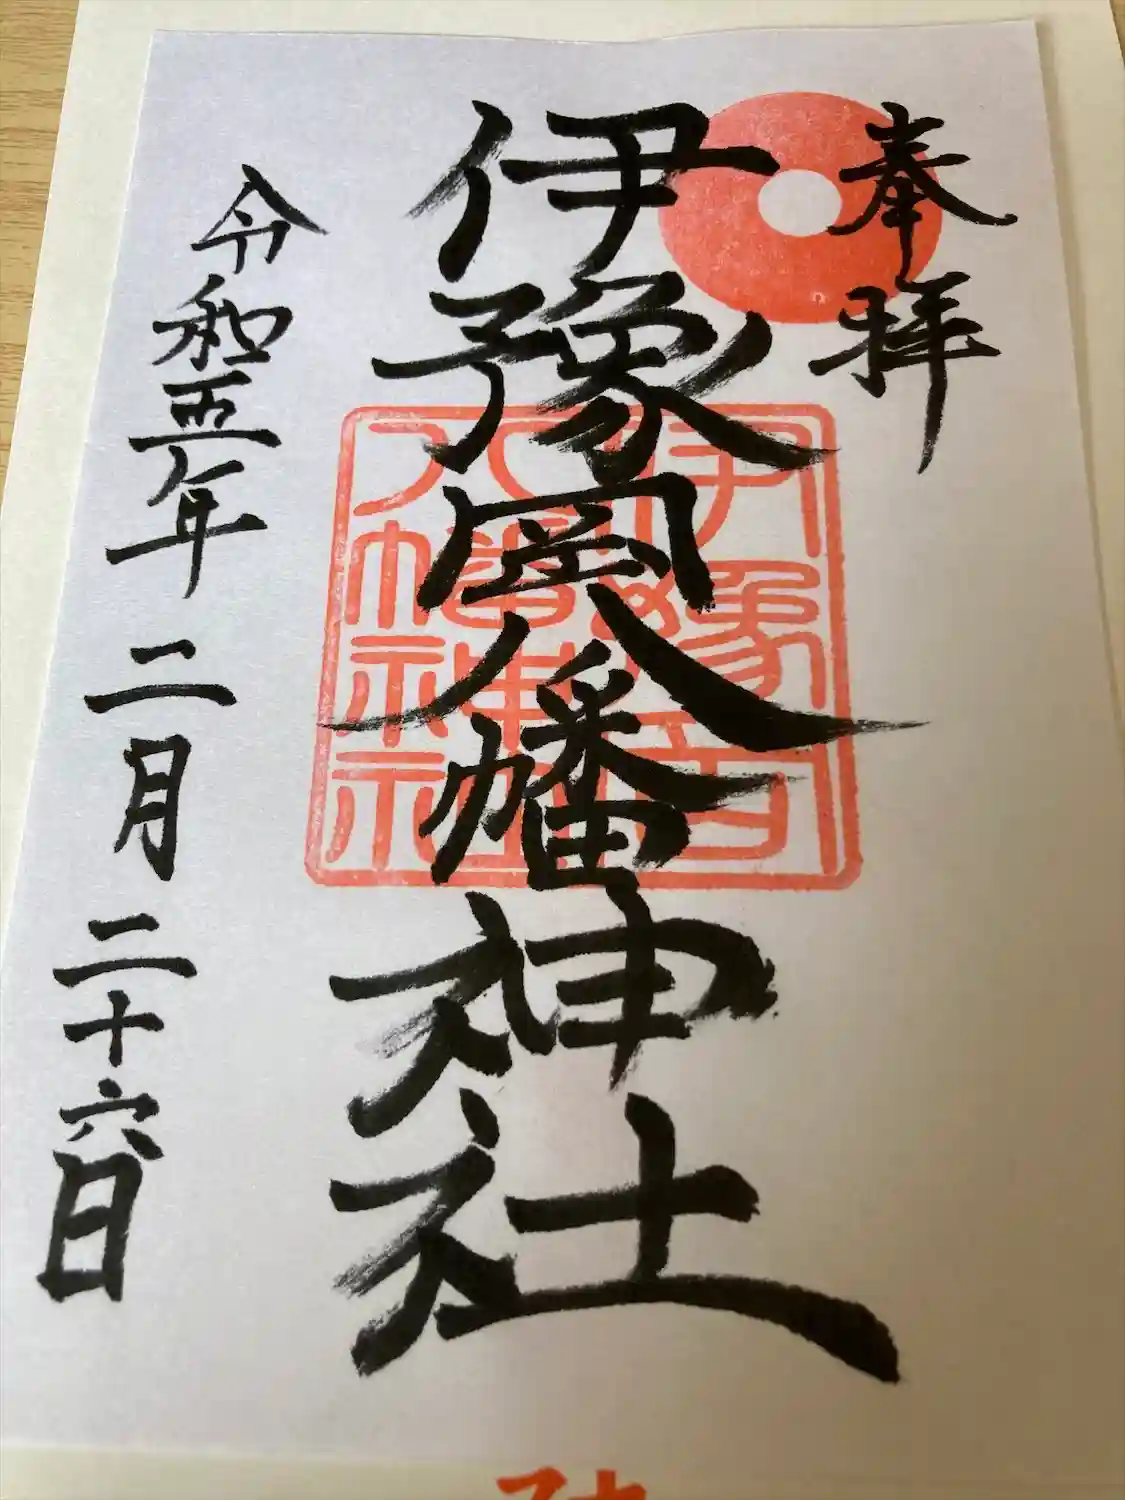 奉拝
伊豫岡八幡神社
令和五年 二月 二十六日
伊豫岡
八幡神社